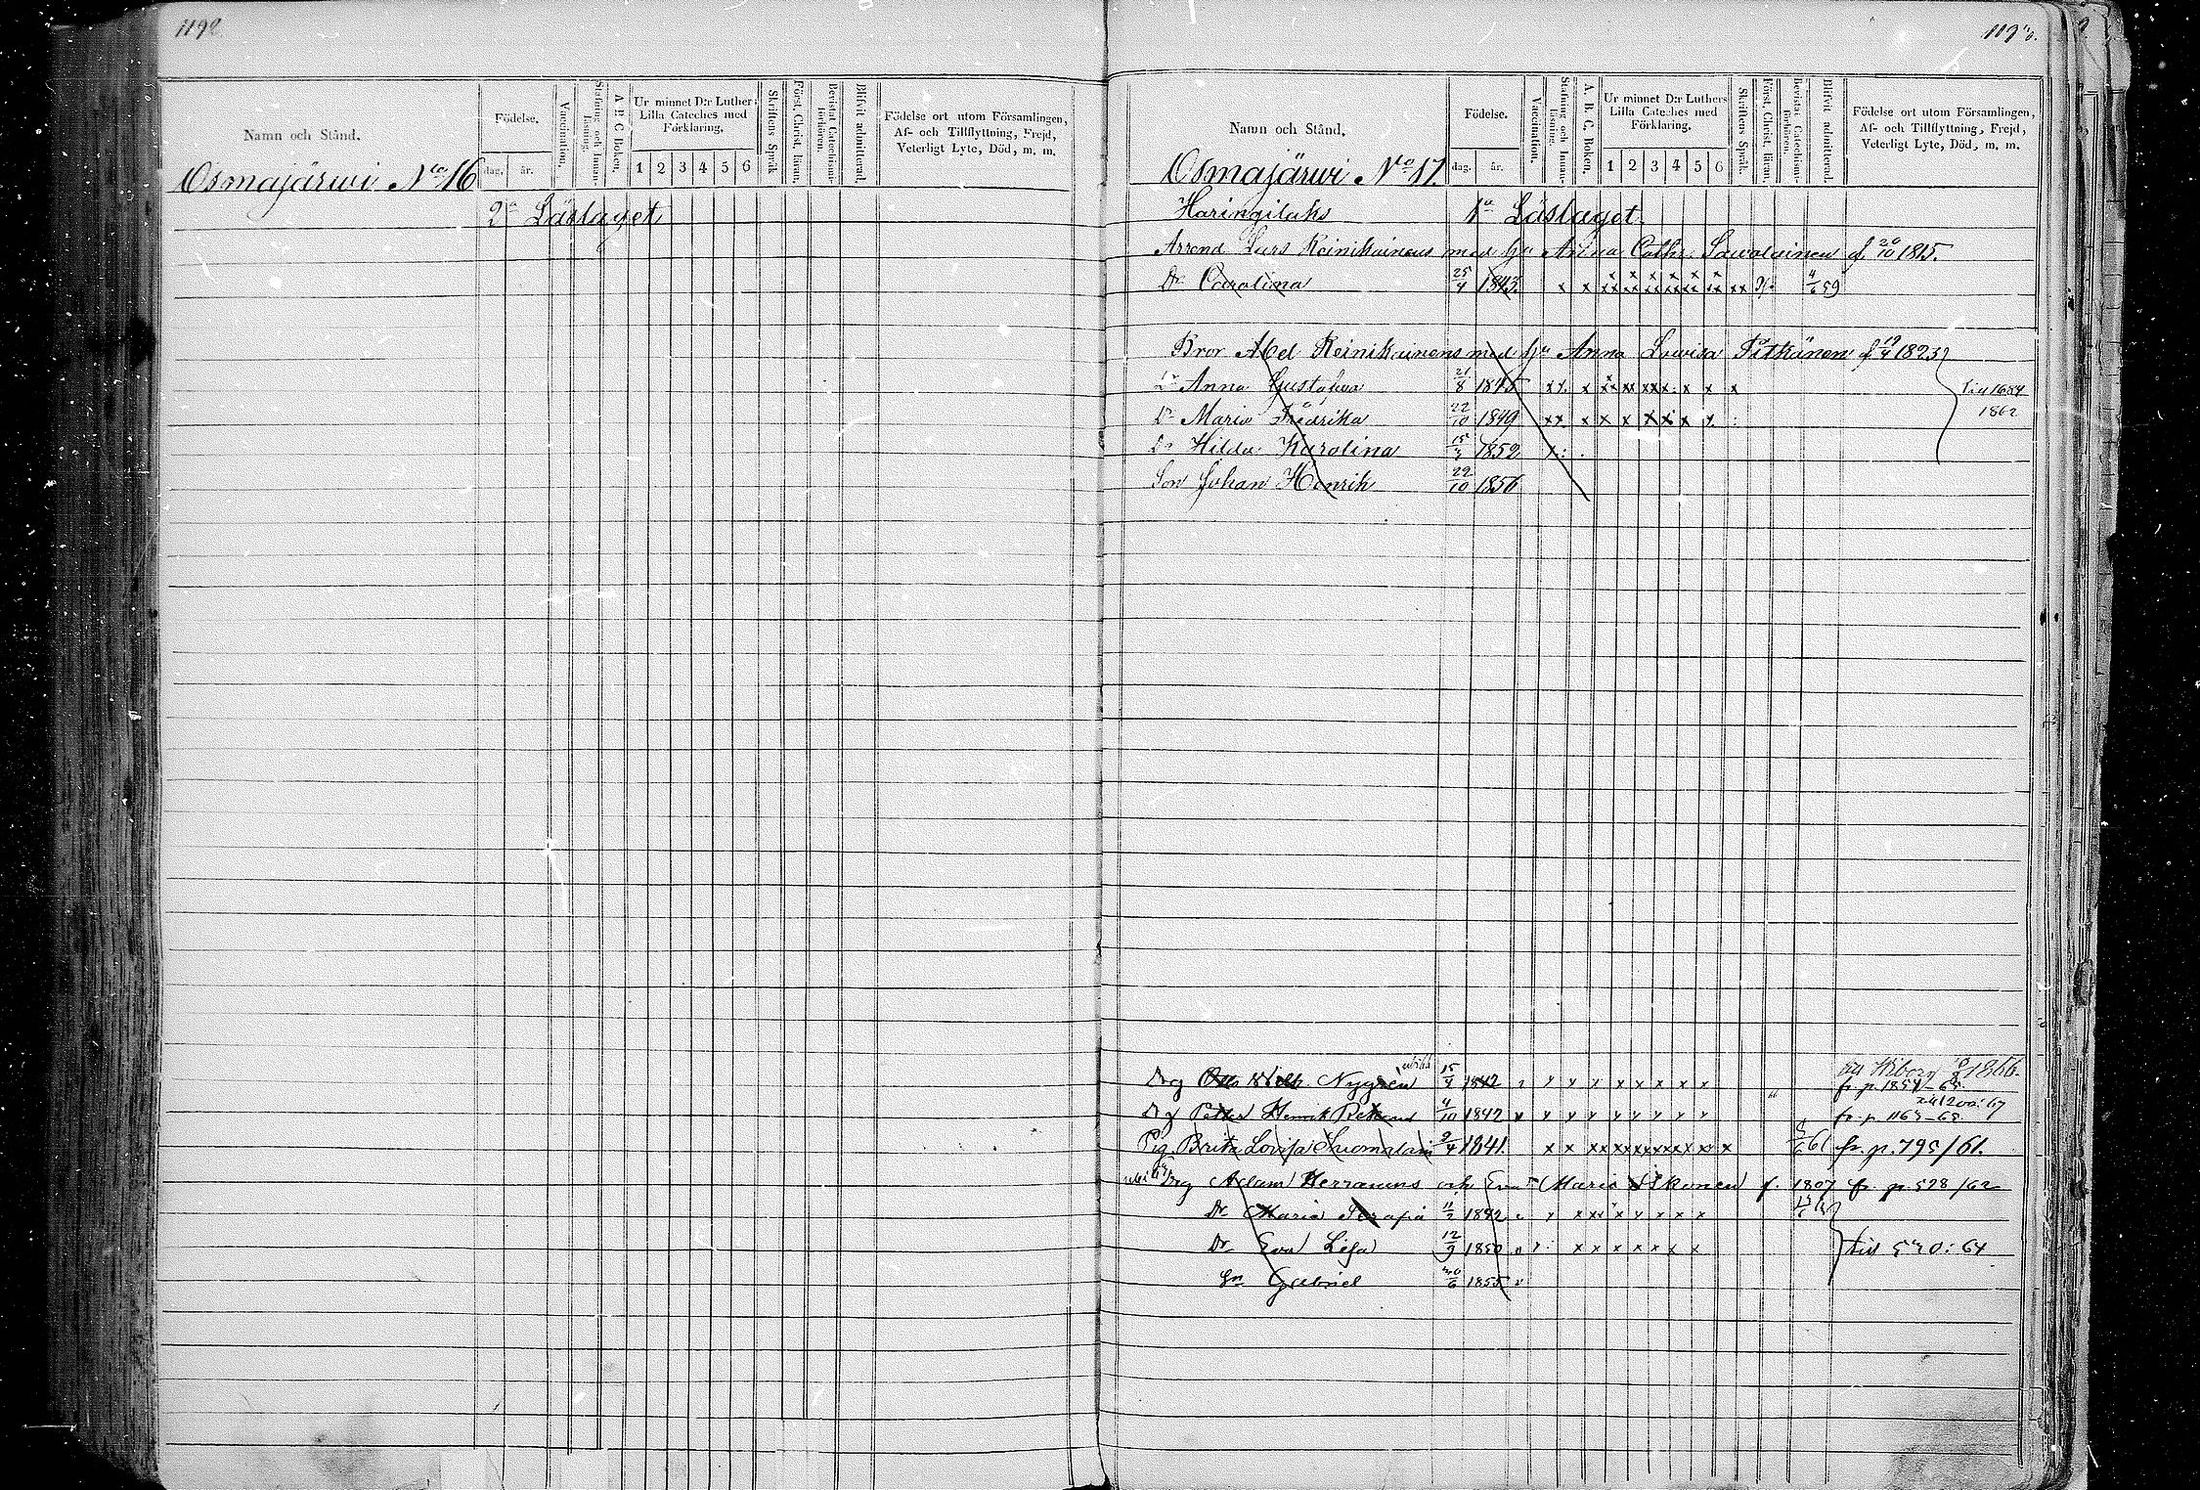 1192
Namn och Stånd.
Födelse.
dag, år.
Vaccination.
Stafning och Innan-läsning.
A B C Boken.
Ur minnet D:r Luthers Lilla Cateches med Förklaring.
1 2 3 4 5 6
Skriftens Språk
Först. Christ. läran.
Bevistat Catechismi-förhören.
Blifvit admitterad.
Födelse ort utom Församlingen,
Af- och Tillflyttning, Frejd,
Veterligt Lyte, Död, m. m.
Osmajärwi No 16
2a Läslaget
Namn och Stånd.
Födelse.
dag. år.
Vaccination.
Stafning och Innan-läsning.
A. B. C. Boken.
Ur minnet D:r Luthers Lilla Cateches med Förklaring.
1 2 3 4 5 6
Skriftens Språk.
Först. Christ. läran.
Bevistat Catechismi-förhören.
Blifvit admitterad.
Födelse ort utom Församlingen,
Af- och Tillflyttning, Frejd,
Veterligt Lyte, Död, m. m.
Osmajärwi No 17.
Haringilaks 1a Läslaget
Arrend Lars Reinikainens med hu Anna Cathr. Sawolainen f 20/10 1815.
Dr Carolina 25/4 1843 x x 4/6 59
Bror Abel Reinikainens med hu Anna Lowisa Pitkänen f 19/4 1823
Dr Anna Gustafva 21/8 1845
Dr Maria Fredrika 22/10 1849
1862
Dr Hilda Karolina 15/3 1852
Son Johan Henrik 22/10 1856
Drg Nygren 15/4 1842 till Wiborg 1866.
Drg Petter Henrik 4/10 1842 fr. p. 1165-65
Pig. Britа Lovisa Suomalain 9/4 1841. 61 fr. p. 795/61.
Drg Adam Herranens och Maria f. 1807 fr. p. 528/62
Dr Maria Serafia 11/2 1842
Dr Eva Lisa 12/9 1850 till 540:64
Sn Gabriel 30/6 1855